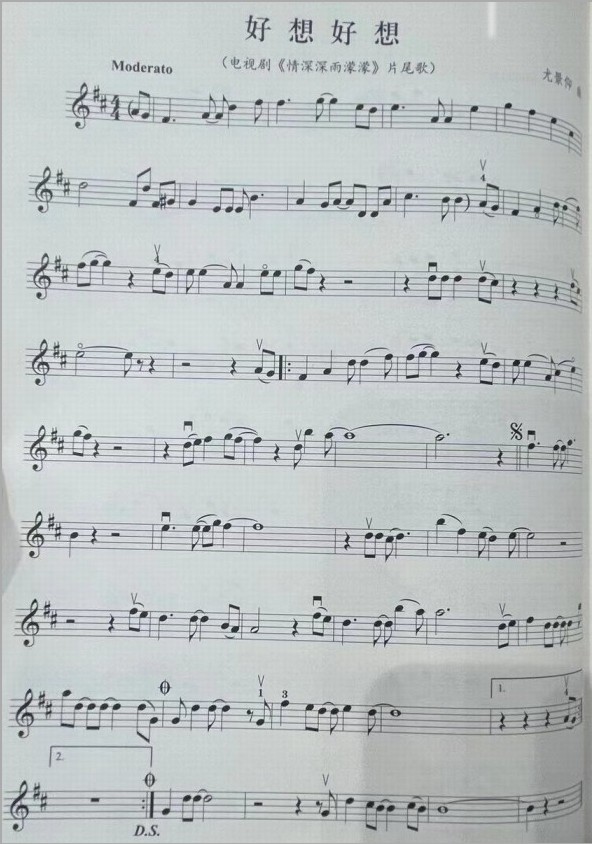 好想好想
Moderato
（电视剧《情深深雨濛濛》片尾歌）
尤景仰
4
4
4
4
1
3
1.
4
2.
D.S.